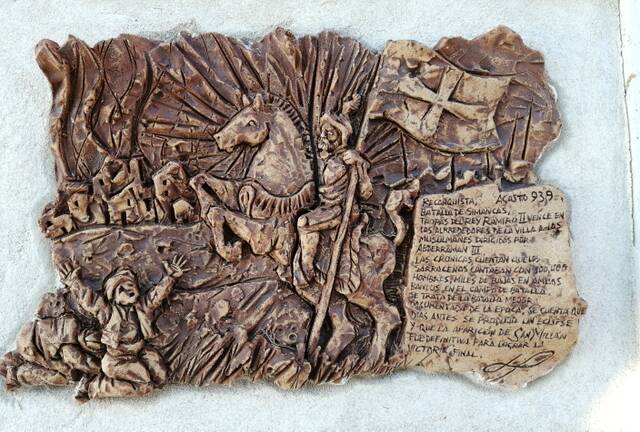 RECONQUISTA, AGOSTO 939.
BATALLA DE SIMANCAS,
TROPAS DEL REY RAMIRO II VENCE EN
LOS ALREDEDORES DE LA VILLA A LOS
MUSULMANES DIRIGIDOS POR
ABDERRAMAN III
LAS CRONICAS CUENTAN QUE LOS
SARRACENOS CONTABAN CON 100,000
HOMBRES, MILES DE BAJAS EN AMBOS
BANDOS, EN EL CAMPO DE BATALLA
SE TRATA DE LA BATALLA MEJOR
DOCUMENTADA DE LA EPOCA, SE CUENTA QUE
DIAS ANTES SE PRODUJO UN ECLIPSE
Y QUE LA APARICION DE SAN MILLAN
FUE DEFINITIVA PARA LOGRAR LA
VICTORIA FINAL.